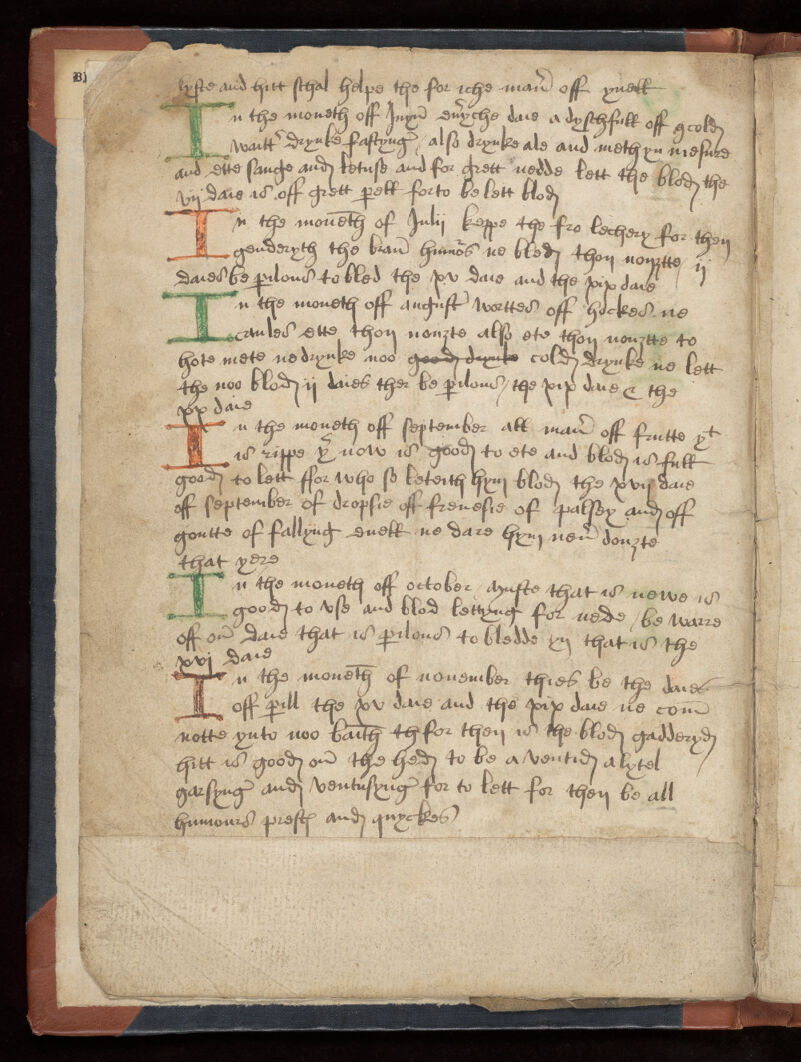 lyste and hitt schal helpe the for iche man̄ off yuell
In the moneth off Juyn̄ eu̓yche daie a dyschfull off gcold
watt̓ drynke fastyng / also drynke ale and meth yn mesure
and ette sauge and letuse and for grett nedde lett the blod the
vij daie is off grett p̲ell forto be lett blod
In the mone̅th of Julij keppe the fro lechery for then
genderyth the bran̄ humo̓s ne bled thou nouȝtte / ij
daies be p̲ilous to bled the xv daie and the xix daie
In the moneth off august wortes off hockes ne
caules ette thou nouȝte also ete thou nouȝtte to
hote mete ne drynke noo good drynke cold drynke ne lett
the noo blod ij daies ther be p̲ilous / the xix daie & the
xx daie
In the moneth off september all man̓ off frutte yt
is rippe y̓ now is good to ete and blod is full
good to lett ffor who so leteith hym blod the xvij daie
off september of dropsie off frenesie of palsey and off
goutte of fallyng euell ne dare hym neu̓ douȝte
that yere
In the moneth off october muste that is newe is
good to vse and blod lettyng for nede / be warre
off on̄ daie that is p̲ilous to bledde yn that is the
xvj daie
In the mone̅th of nouember thies be the daies
off p̲ill the xv daie and the xix daie ne com̄
notte ynto noo ba̅ith thfor then is the blod gadderyd
hitt is good on̄ the hed to be a ventid a lytel
garsyng and ventusyng for to lett for then be all
humours prest and quyckes